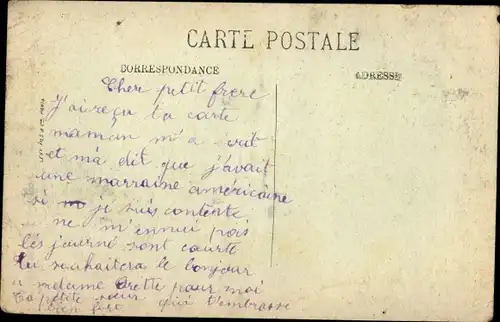 CARTE POSTALE
CORRESPONDANCE
ADRESSE
Cher petit frere
J'ai reçu ta carte
maman m'a écrit
et m'a dit que j'avait
une marraine américaine
si je suis contente
ne m'ennui pois
lés journé sont courte
tu souhaitera le bonjour
a madame pour moi
ta petite sœur qui t'embrasse
bien fort